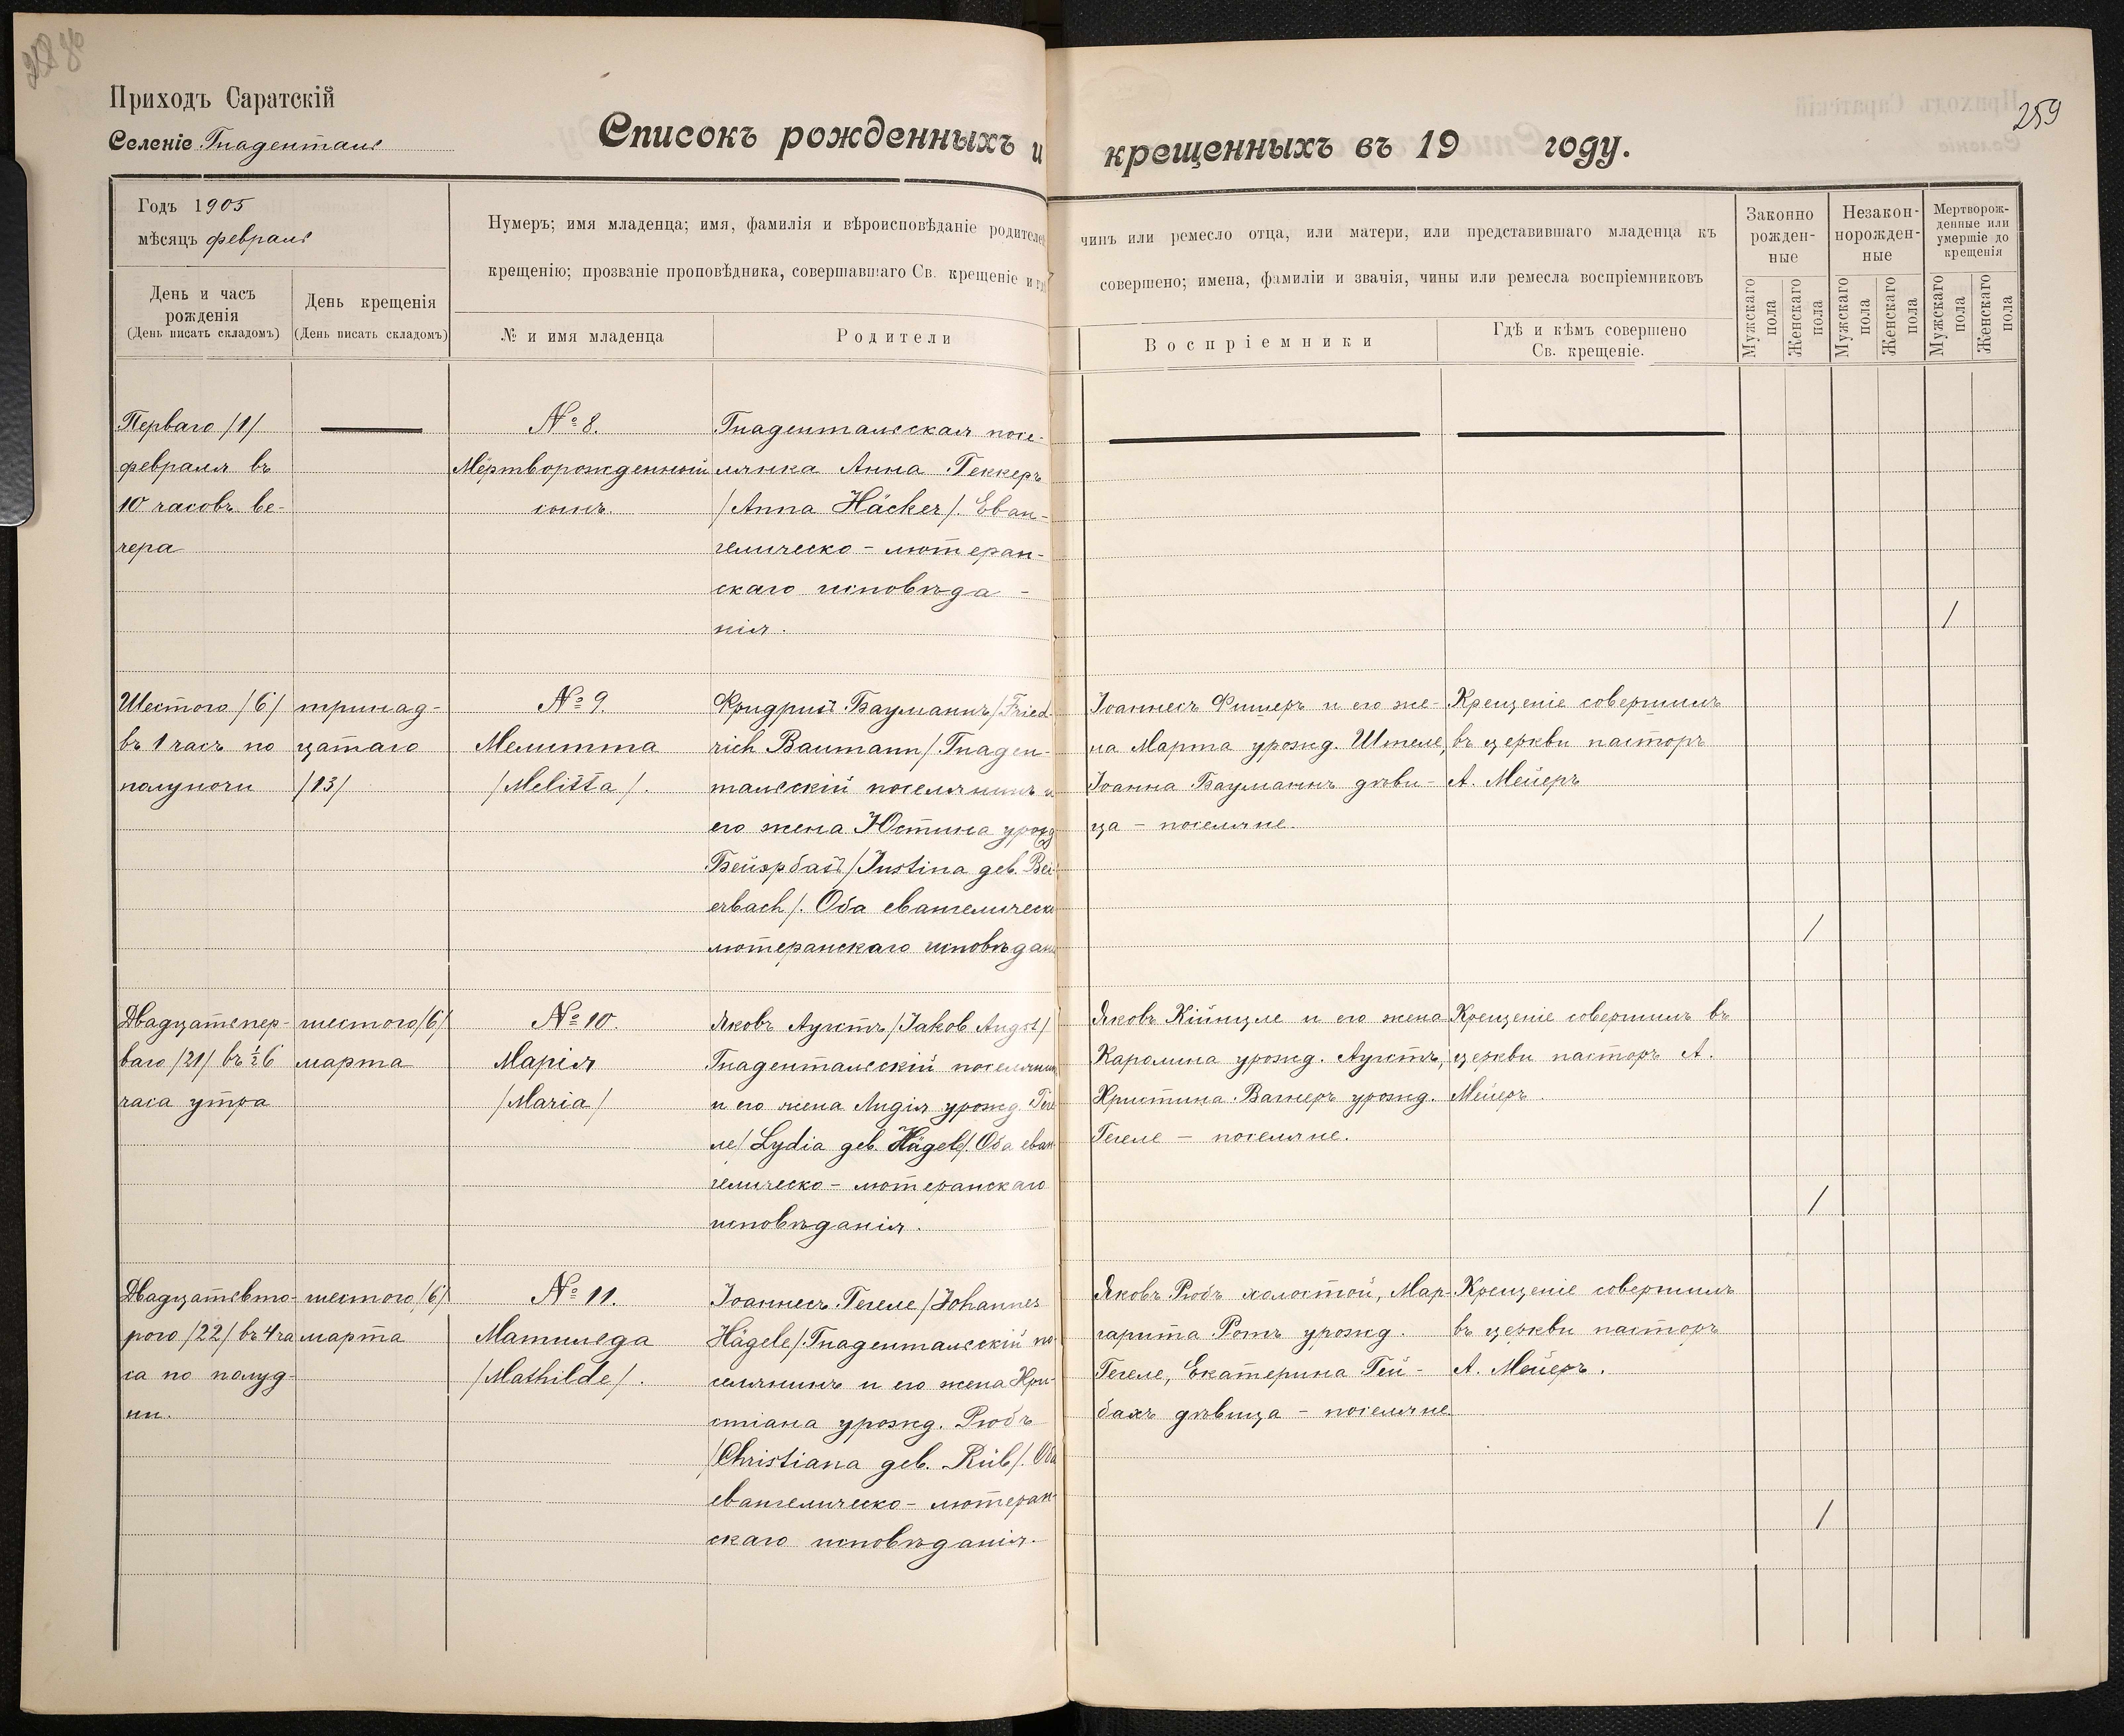 Приходъ Саратскій
Селеніе Гнаденталь
Списокъ рожденныхъ и крещенныхъ въ 19 году.
259
Годъ 1905
мѣсяцъ февраль
Нумеръ; имя младенца; имя, фамилія и вѣроисповѣданіе родителей
чинъ или ремесло отца, или матери, или представившаго младенца къ
крещенію; прозваніе проповѣдника, совершавшаго Св. крещеніе и гдѣ
совершено; имена, фамиліи и званія, чины или ремесла воспріемниковъ
День и часъ
рожденія
(День писать складомъ)
День крещенія
(День писать складомъ)
№ и имя младенца
Родители
Воспріемники
Гдѣ и кѣмъ совершено
Св. крещеніе.
Законно
рожден-
ные
Незакон-
норожден-
ные
Мертворож-
денные или
умершіе до
крещенія
Мужскаго
пола
Женскаго
пола
Мужскаго
пола
Женскаго
пола
Мужскаго
пола
Женскаго
пола
Перваго /1/
февраля въ
10 часовъ ве-
чера
№ 8.
Мёртворожденный
сынъ.
Гнадентальская посе-
лянка Анна Геккеръ
/Anna Häcker/. Еван-
гелическо-лютеран-
скаго исповѣда-
нія.
/
Шестого /6/
въ 1 часъ по
полуночи
тринад-
цатаго
/13/
№ 9.
Мелитта
/Melitta/.
Фридрихъ Бауманнъ /Fried-
rich Baumann/ Гнаден-
тальскій поселянинъ и
его жена Юстина урожд
Бейэрбахъ /Justina geb. Bei-
erbach/. Оба евангелическо
лютеранскаго исповѣдані
Іоаннесъ Фишеръ и его же-
на Марта урожд. Штеле,
Іоанна Бауманнъ дѣви-
ца - поселяне.
Крещеніе совершилъ
въ церкви пасторъ
А. Мейеръ
/
Двадцатьпер-
ваго /21/ въ ½6
часа утра
шестого /6/
марта
№ 10.
Марія
/Maria/
Яковъ Аугстъ /Jakob Augst/
Гнадентальскій поселянин
и его жена Лидія урожд. Геге
ле/ Lydia geb. Hägele/. Оба еван
гелическо-лютеранскаго
исповѣданія.
Яковъ Кійнцле и его жена
Каролина урожд. Аугстъ,
Христина Вагнеръ урожд.
Гегеле - поселяне.
Крещеніе совершилъ въ
церкви пасторъ А.
Мейеръ.
/
Двадцатьвто-
рого /22/ въ 4 ча
са по полуд-
ни.
шестого /6/
марта
№ 11.
Матильда
/Mathilde/.
Іоаннесъ Гегеле /Johannes
Hägele/ Гнадентальскій по-
селянинъ и его жена Хри-
стіана урожд. Рюбъ
/Christiana geb. Rüb/. Оба
евангелическо-лютеран-
скаго исповѣданія.
Яковъ Рюбъ холостой, Мар-
гарита Ротъ урожд.
Гегеле, Екатерина Гей-
бахъ дѣвица - поселяне.
Крещеніе совершилъ
въ церкви пасторъ
А. Мейеръ.
/